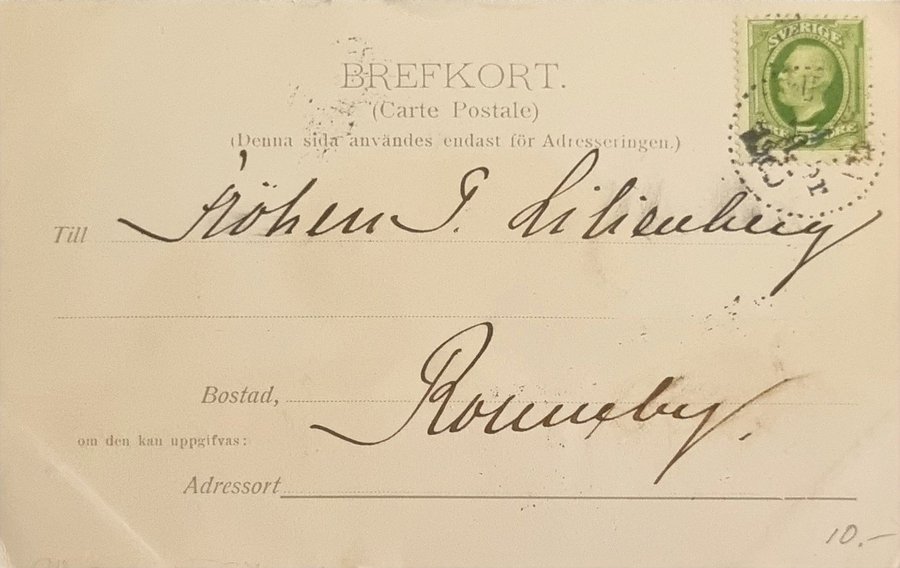 SVERIGE
BREFKORT.
(Carte Postale)
(Denna sida användes endast för Adresseringen.)
Till Fröken S. Lilienberg
Bostad, Ronneby.
om den kan uppgifvas:
Adressort
10.-